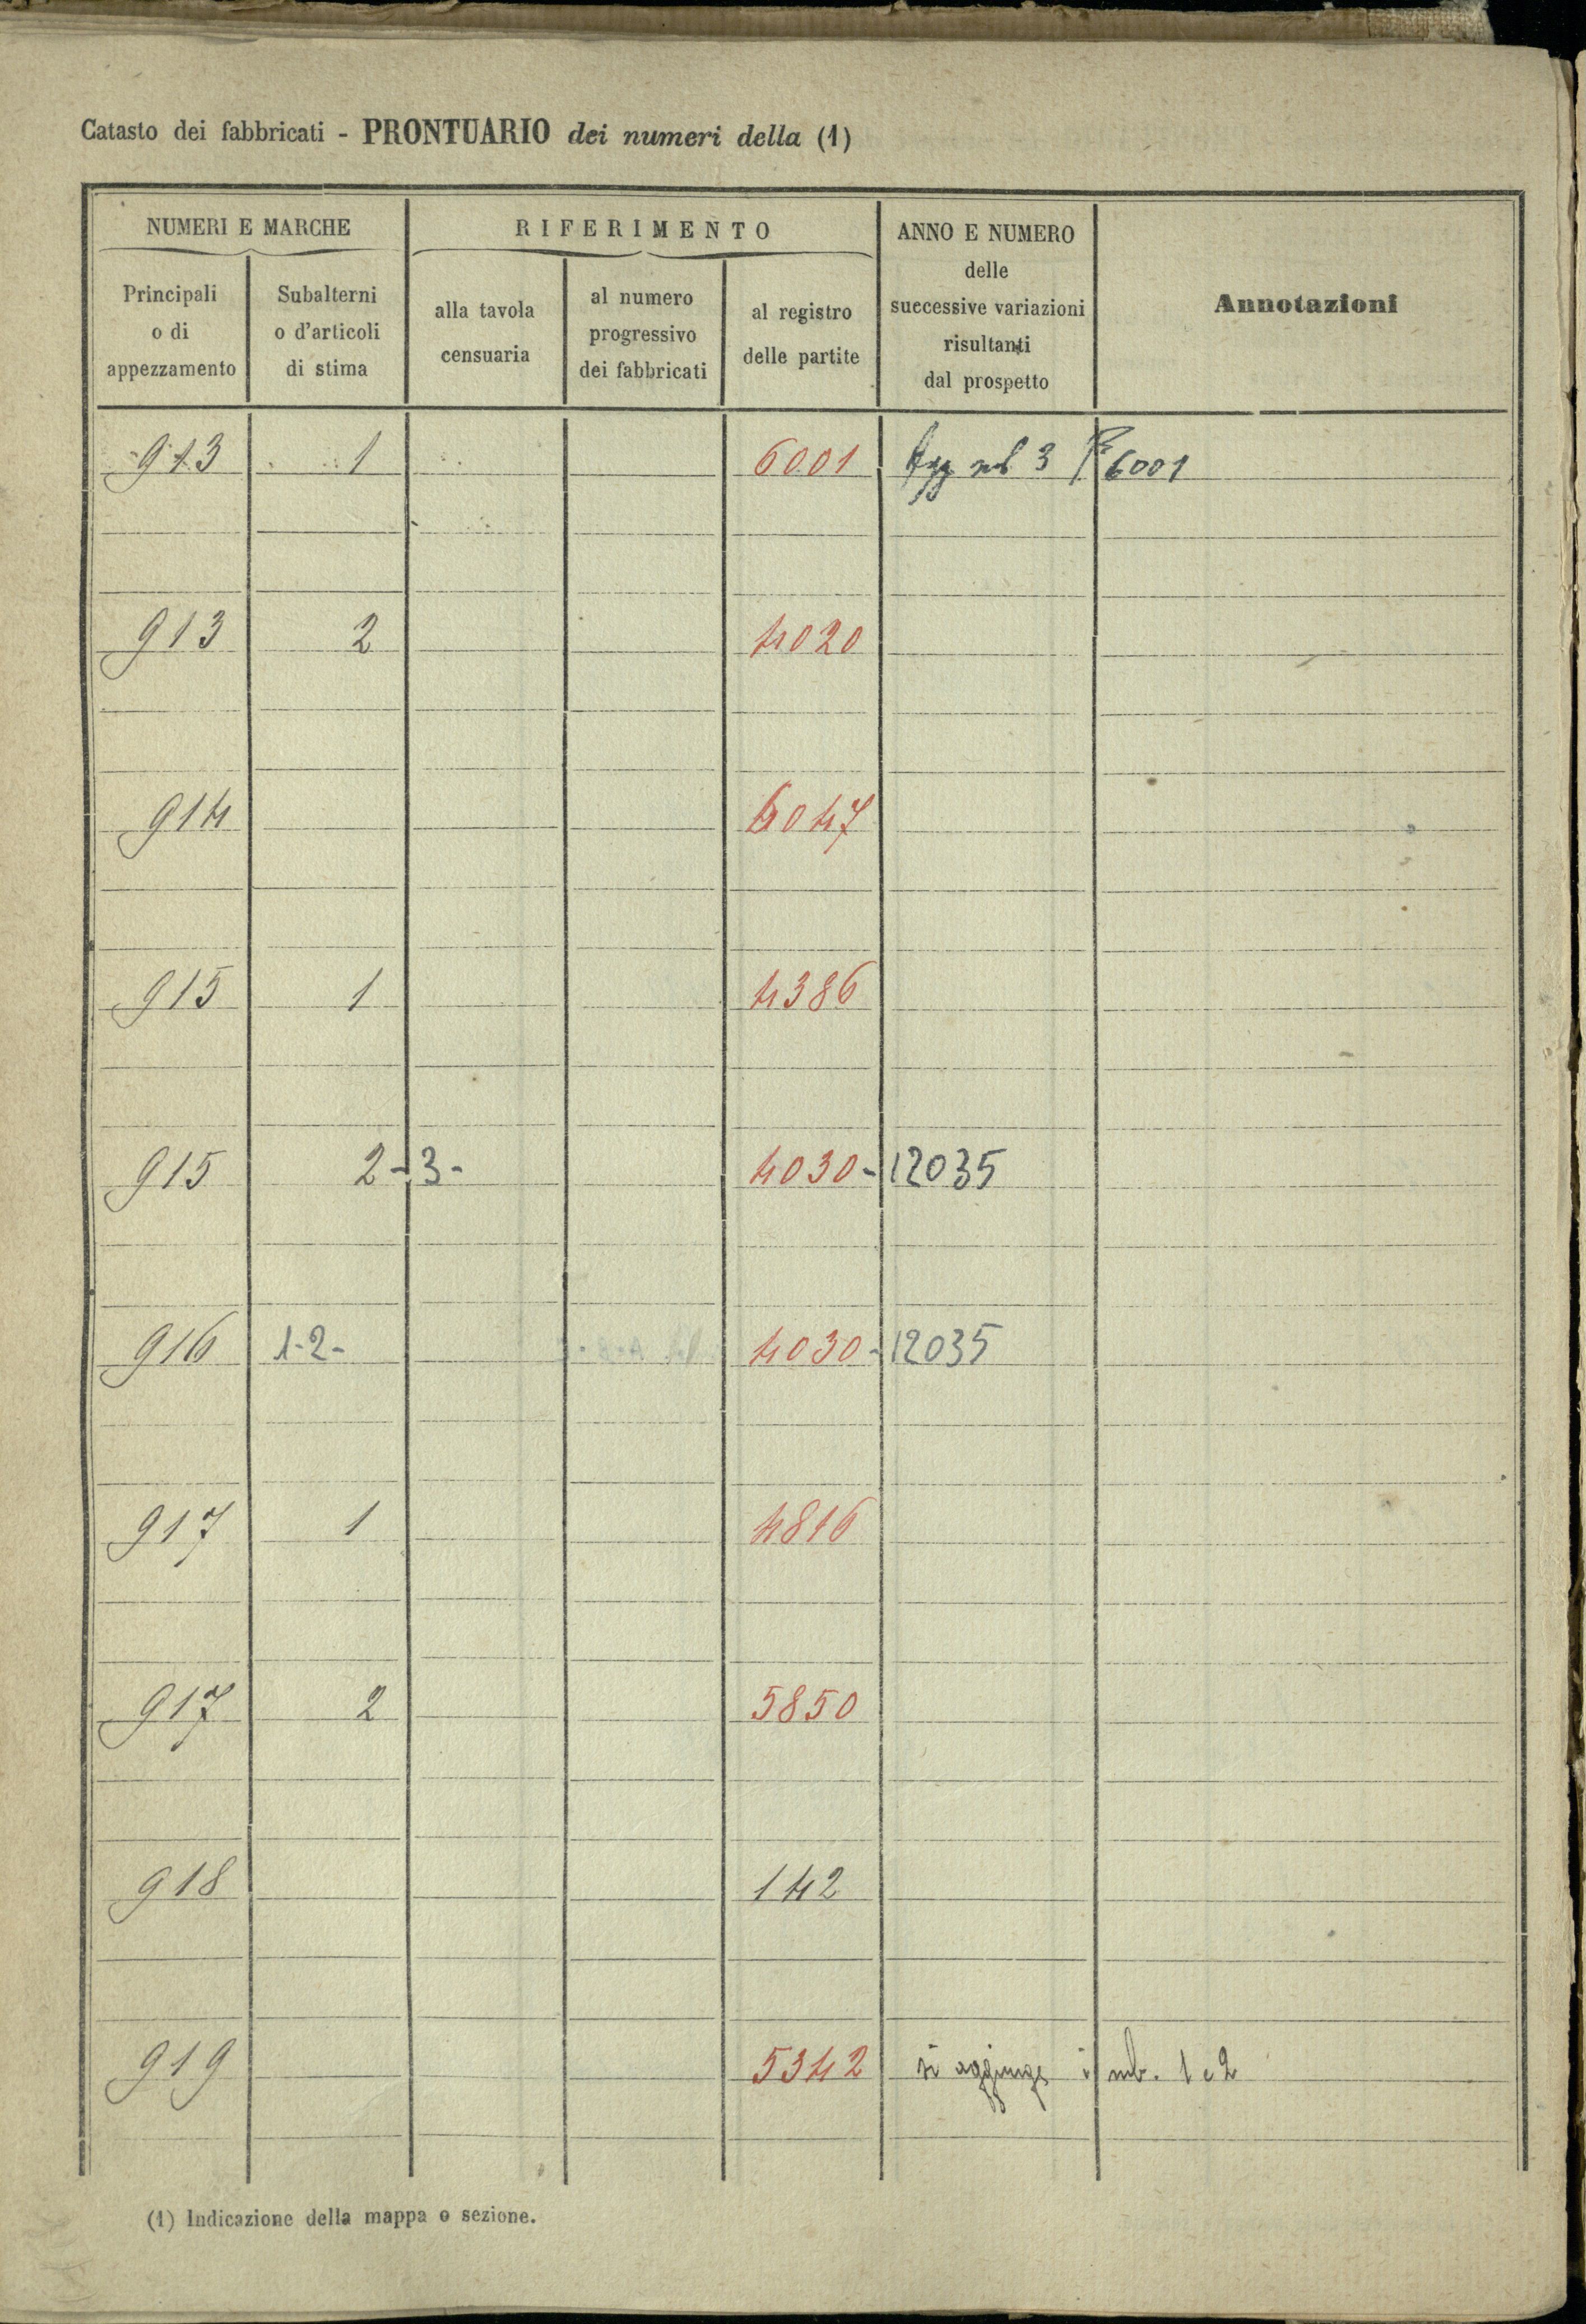 Catasto dei fabbricati - PRONTUARIO dei numeri della (1)
NUMERI E MARCHE
RIFERIMENTO
ANNO E NUMERO
delle
successive variazioni
risultanti
dal prospetto
Annotazioni
Principali
o di
appezzamento
Subalterni
o d'articoli
di stima
alla tavola
censuaria
al numero
progressivo
dei fabbricati
al registro
delle partite
913 1 6001 Agg sub 3 P. 6001
913 2 4020
914 4047
915 1 4386
915 2-3- 4030-12035
916 1-2- 4030-12035
917 1 4816
917 2 5850
918 142
919 5342 si aggiunge i sub. 1 e 2
(1) Indicazione della mappa o sezione.